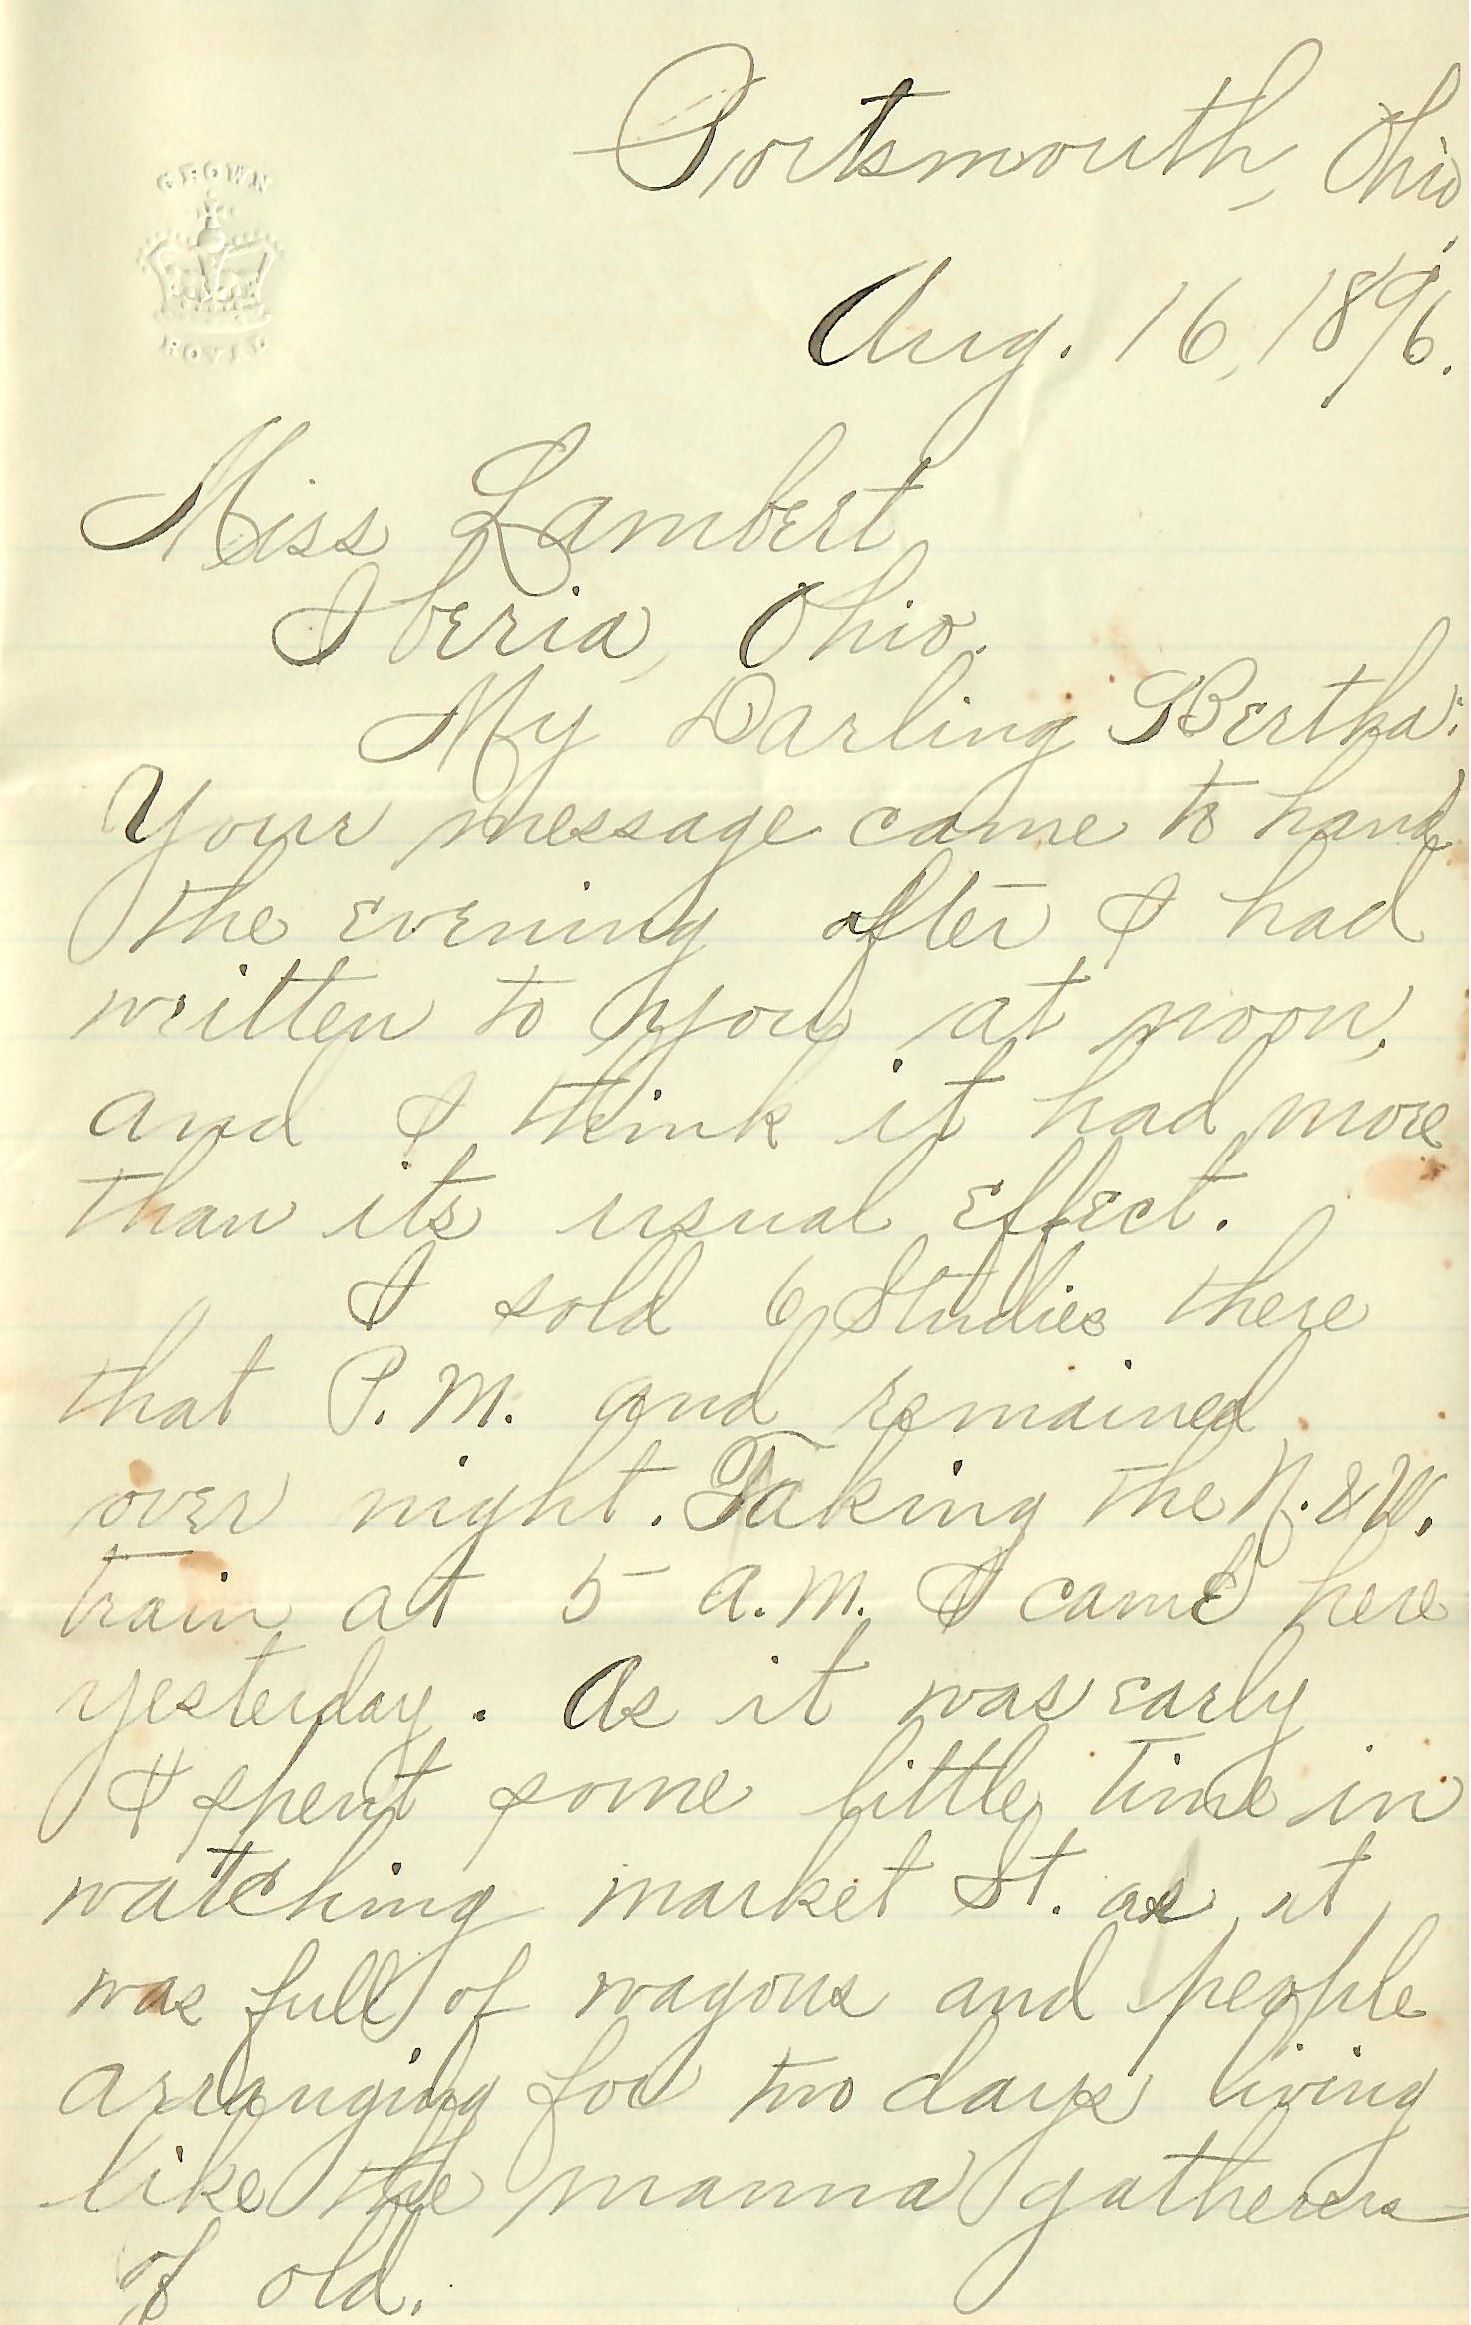 Portsmouth, Ohio,
CROWN
ROYAL
Aug. 16, 1896.
Miss Lambert
Iberia, Ohio.
My Darling Bertha:
Your message came to hand
the evening after I had
written to you at noon,
and I think it had more
than its usual effect.
I sold 6 Studies there
that P.M. and remained
over night. Taking the N. & W.
train at 5 A.M. I came here
yesterday. As it was early
I spent some little time in
watching market St. as it
was full of wagons and people
arranging for two days living
like the manna gatherers
of old.